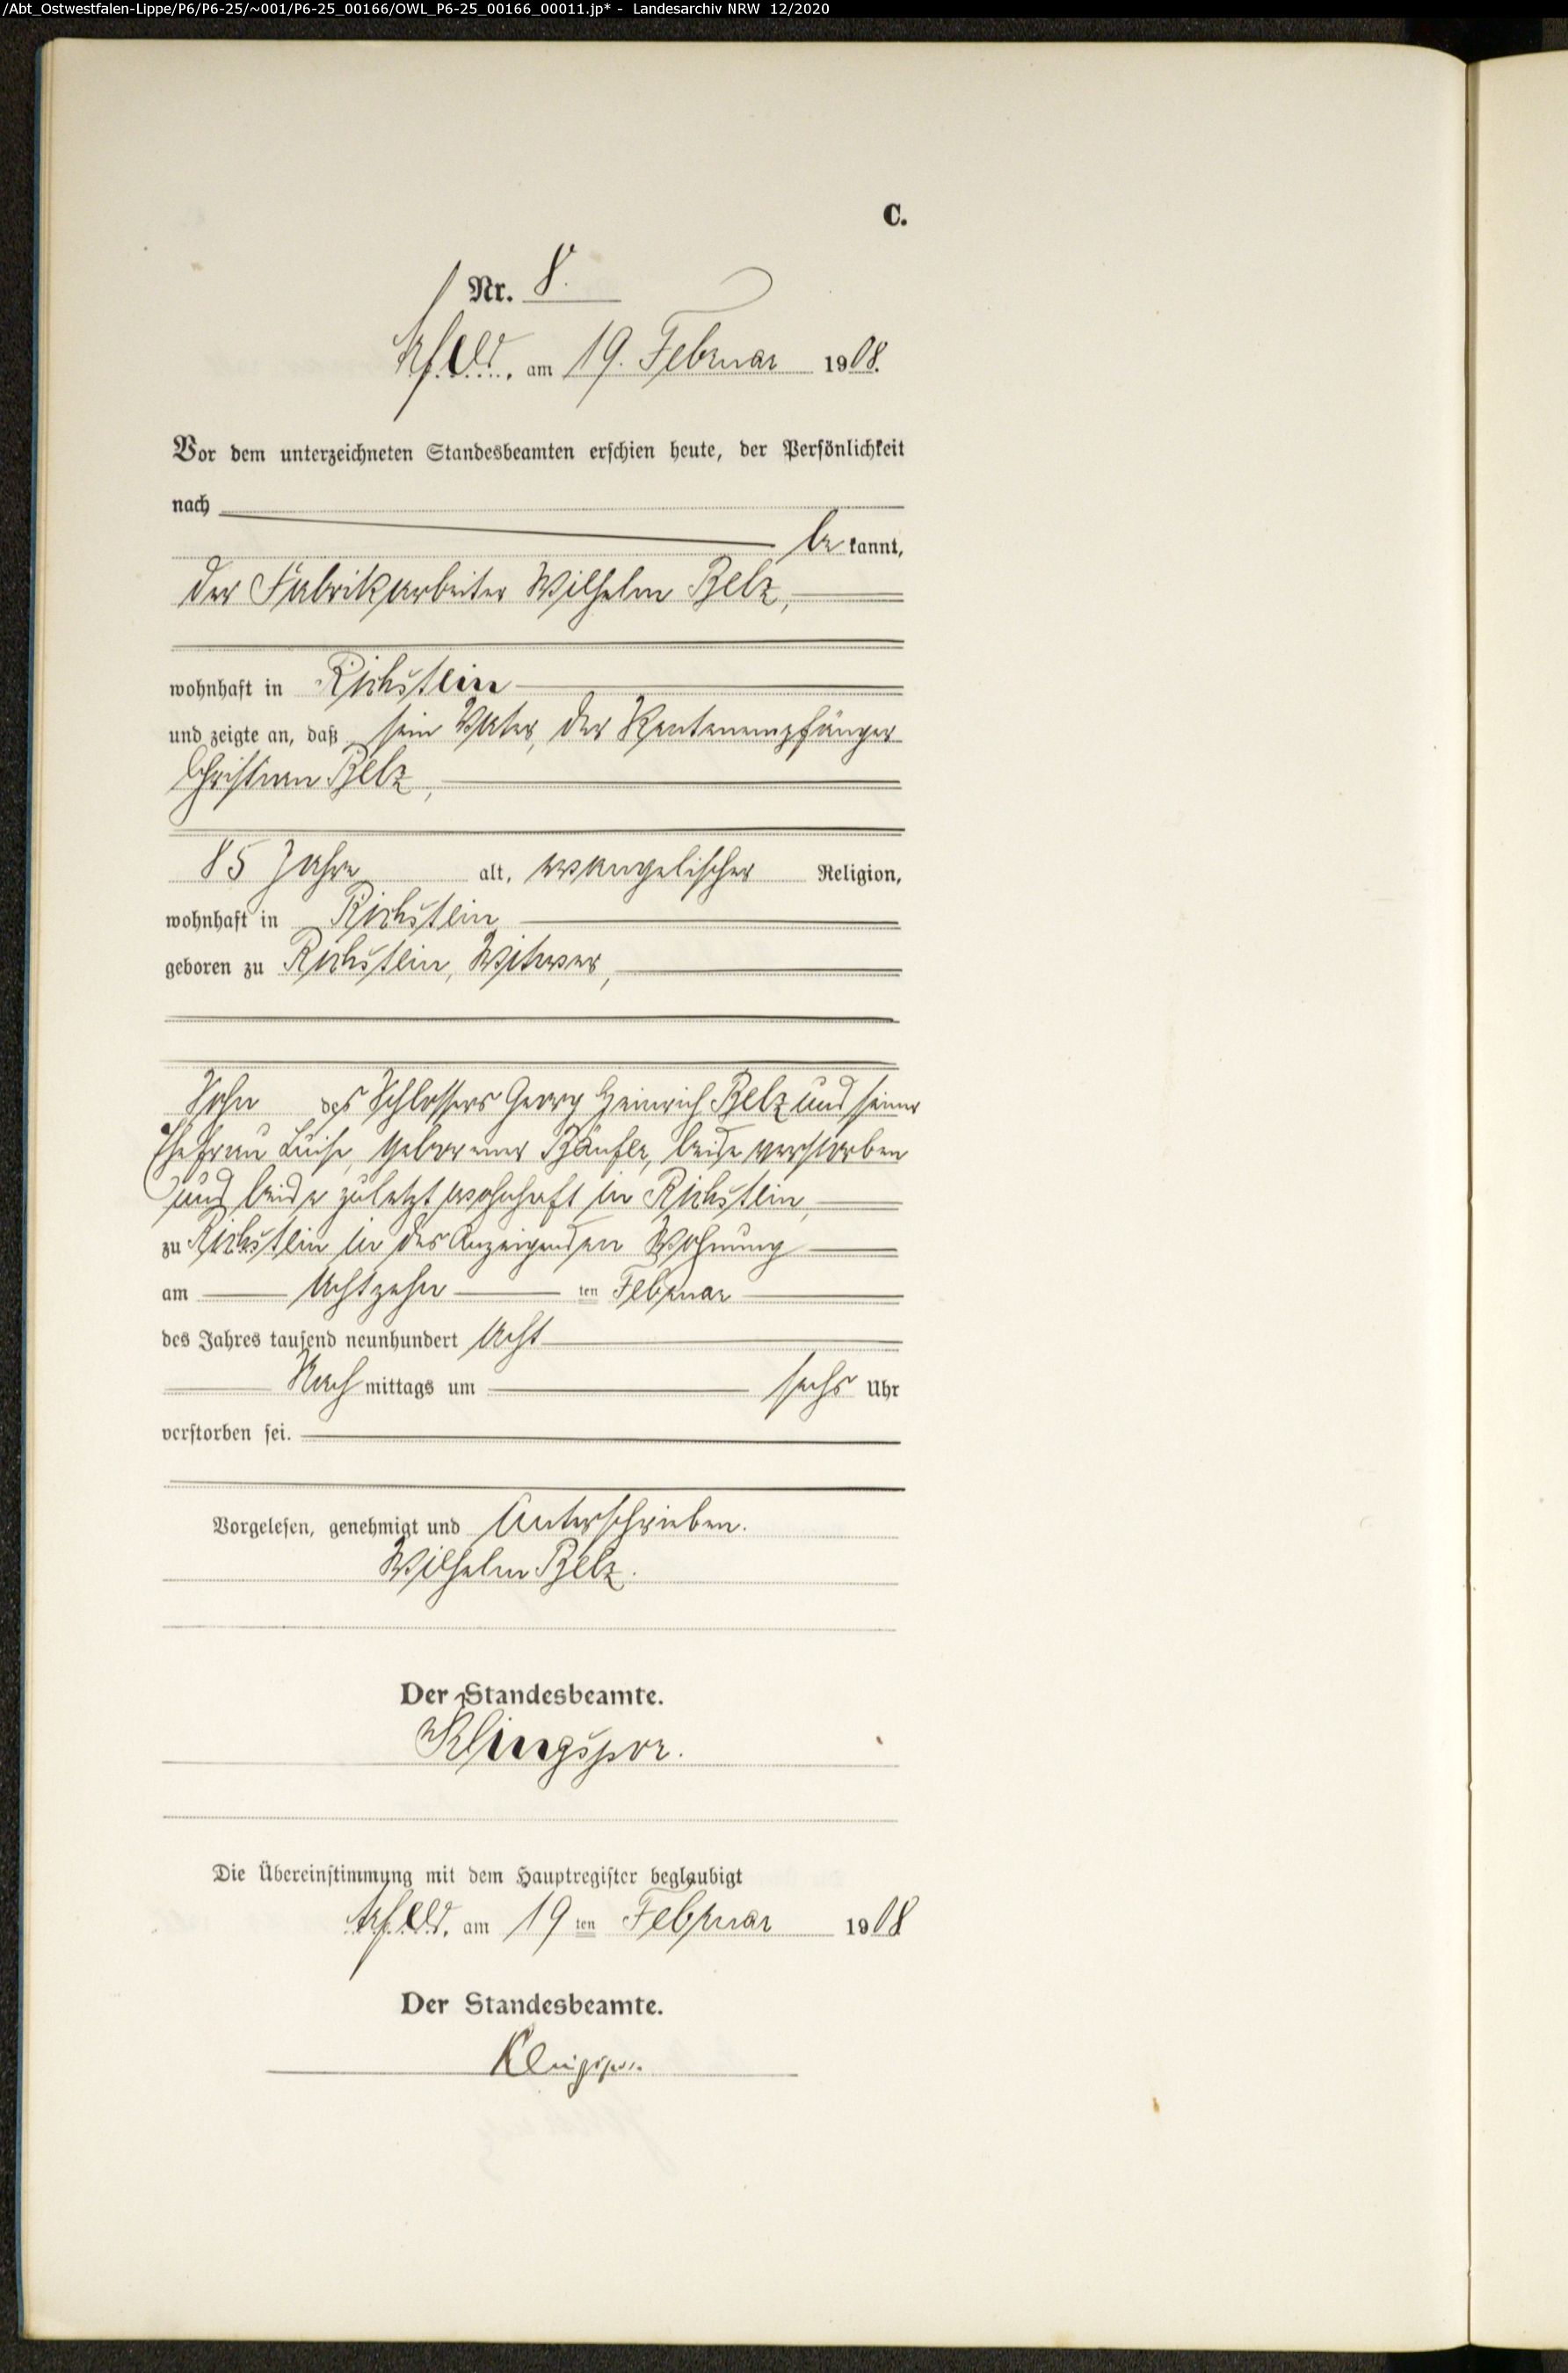 /Abt_Ostwestfalen-Lippe/P6/P6-25/~001/P6-25_00166/OWL_P6-25_00166_00011.jp* - Landesarchiv NRW 12/2020
C.
Nr. 8.
Arfeld, am 19. Februar 1908.
Vor dem unterzeichneten Standesbeamten erschien heute, der Persönlichkeit
nach
be kannt,
der Fabrikarbeiter Wilhelm Belz,
wohnhaft in Richstein
und zeigte an, daß sein Vater, der Rentenempfänger
Christian Belz,
85 Jahre alt, evangelischer Religion,
wohnhaft in Richstein
geboren zu Richstein, Witwer,
Sohn des Schlossers Georg Heinrich Belz und seiner
Ehefrau Luise, geborener, beide verstorben
und beide zuletzt wohnhaft in Richstein,
zu Richstein in des Anzeigenden Wohnung
am Achtzehn ten Februar
des Jahres tausend neunhundert Acht
Nach mittags um sechs Uhr
verstorben sei.
Vorgelesen, genehmigt und Unterschrieben.
Wilhelm Belz.
Der Standesbeamte.
Klingspor.
Die Übereinstimmung mit dem Hauptregister beglaubigt
Arfeld, am 19 ten Februar 1908
Der Standesbeamte.
Klingspor.